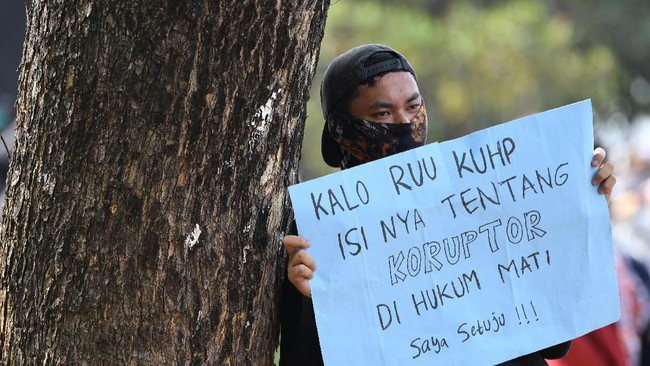 KALO RUU KUHP
ISI NYA TENTANG
KORUPTOR
DI HUKUM MATI
Saya Setuju !!!